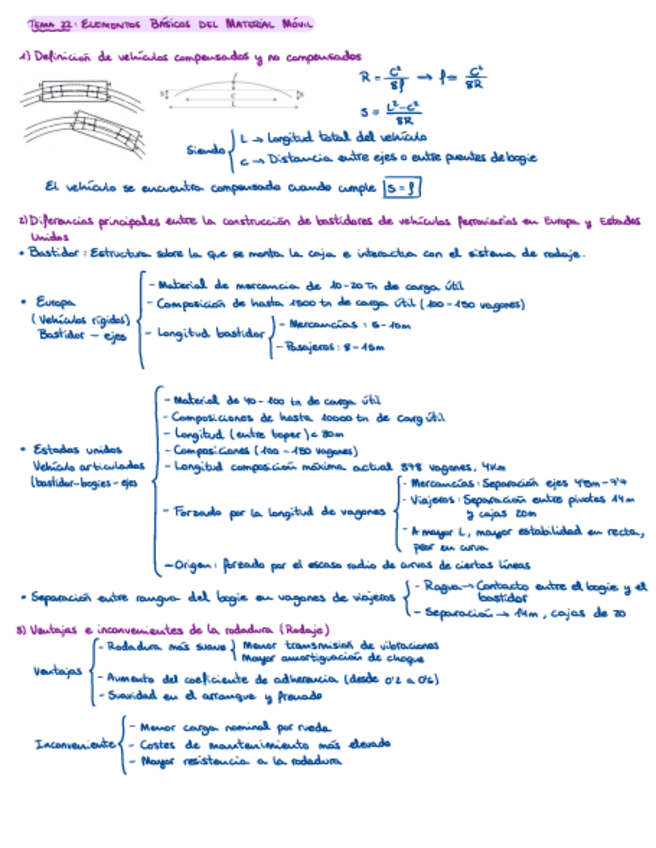 TEMA 22: ELEMENTOS BÁSICOS DEL MATERIAL MÓVIL
1) Definición de vehículos compensados y no compensados
R = C²/8f → f = C²/8R
S = L²-C²/8R
f
S C S
L
Siendo { L → Longitud total del vehículo
C → Distancia entre ejes o entre puentes de bogie
El vehículo se encuentra compensado cuando cumple S = f
2) Diferencias principales entre la construcción de bastidores de vehículos ferroviarios en Europa y Estados
Unidos
• Bastidor: Estructura sobre la que se monta la caja e interactua con el sistema de rodaje.
• Europa
(Vehículos rígidos)
Bastidor - ejes
- Material de mercancia de 10-20 Tn de carga útil
- Composición de hasta 1500 tn de carga útil (100-150 vagones)
- Longitud bastidor
- Mercancías: 6-10m
- Pasajeros: 8-15m
• Estados unidos
Vehículo articulados
(bastidor-bogies-ejes
- Material de 40-100 tn de carga útil
- Composiciones de hasta 10000 tn de carg útil
- Longitud (entre toper) < 30m
- Composiciones (100-150 vagones)
- Longitud composición máxima actual 578 vagones, 4Km
- Forzado por la longitud de vagones
- Mercancías: Separación ejes
- Viajeros: Separación entre pivotes 14m
y cajas 20m
- A mayor L, mayor estabilidad en recta,
peor en curva
- Origen: forzado por el escaso radio de curvas de ciertas líneas
• Separación entre rangua del bogie en vagones de viajeros
- Ragua → Contacto entre el bogie y el
bastidor
- Separación → 14m, cajas de 20
3) Ventajas e inconvenientes de la rodadura (Rodaje)
Ventajas
- Rodadura más suave } Menor transmisión de vibraciones
Mayor amortiguación de choque
- Aumento del coeficiente de adherencia (desde 0'2 a 0'6)
- Suavidad en el arranque y frenado
Inconveniente
- Menor carga nominal por rueda
- Costes de mantenimiento más elevado
- Mayor resistencia a la rodadura